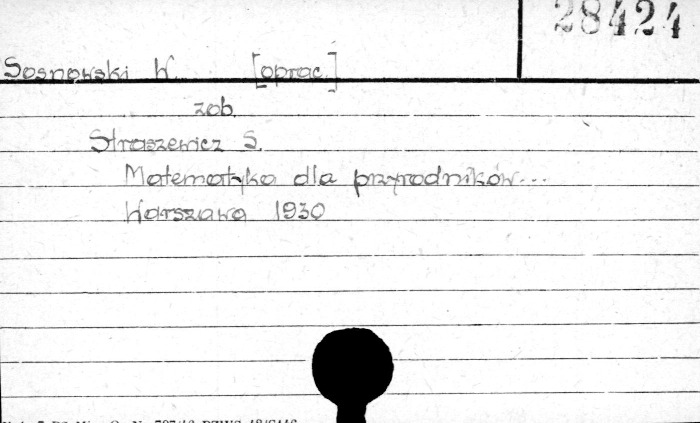 28424
Sosnowski W. [oprac.]
zob.
Straszewicz S.
Matematyka dla przyrodników...
Warszawa 1930